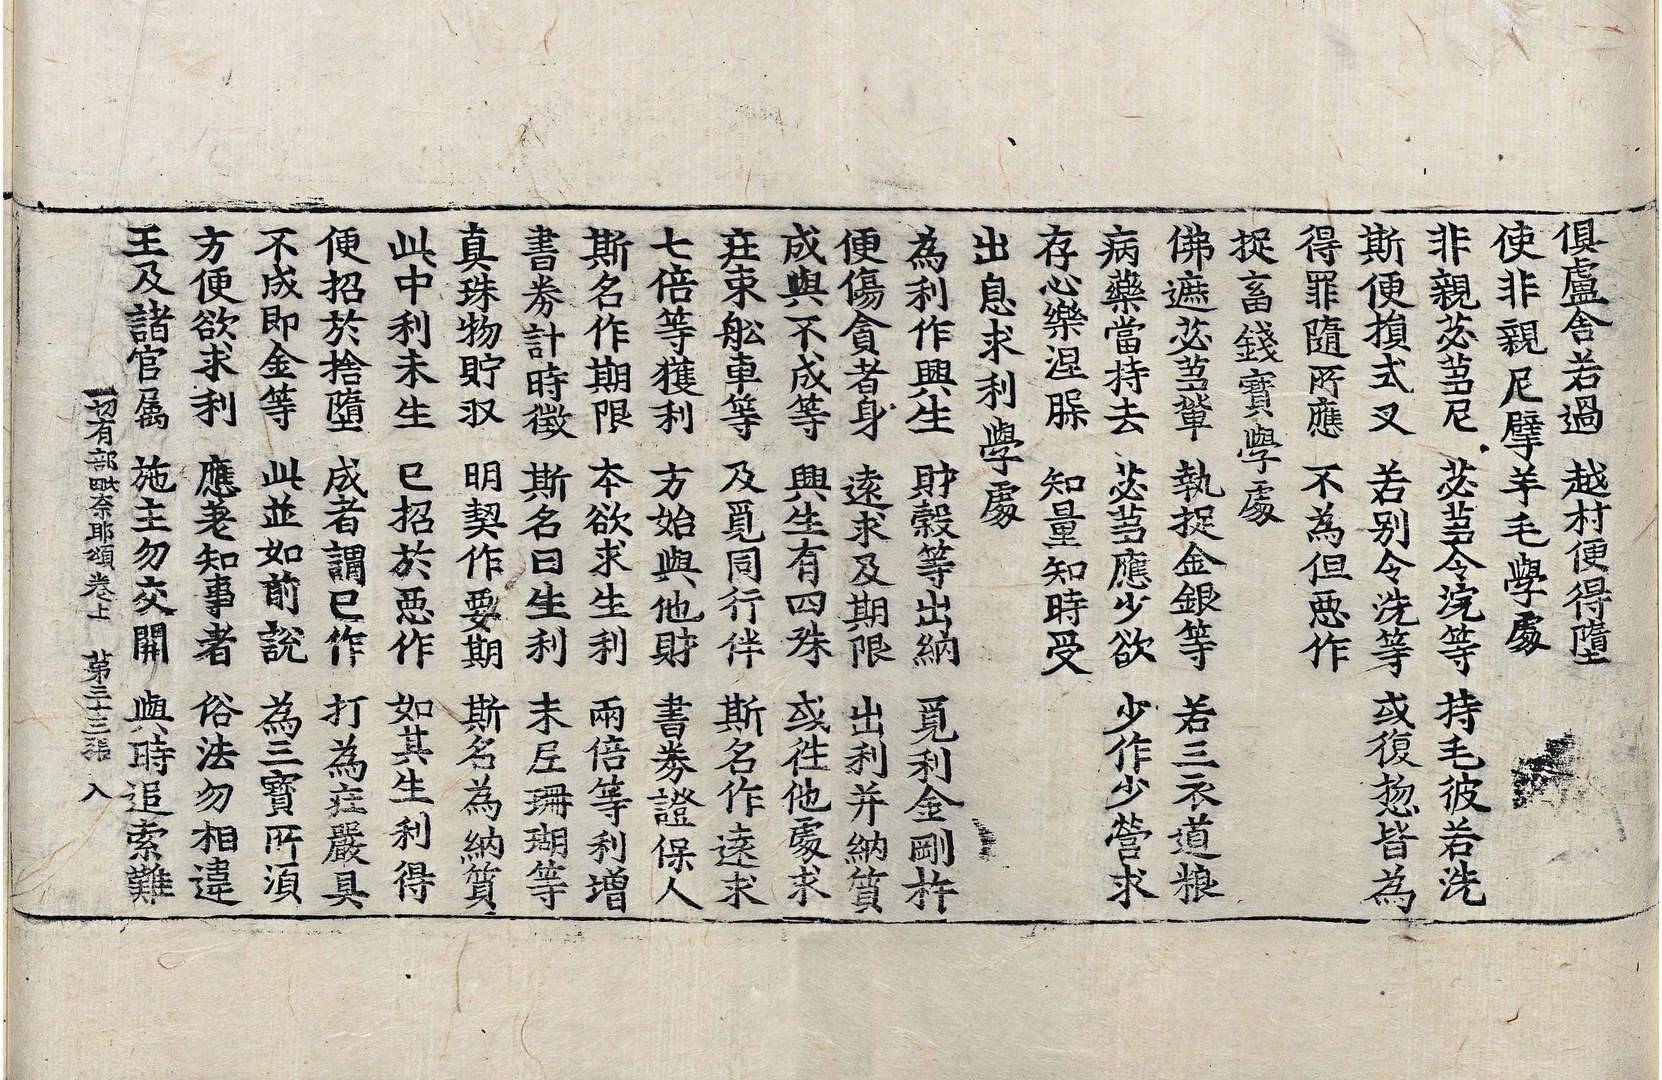 俱盧舍若過　越村便得墮
使非親尼擘羊毛學處
非親苾芻尼　苾芻令浣等　持毛彼若洗
斯便損式叉　若別令洗等　或復惣皆為
得罪隨所應　不為但惡作
捉畜錢寶學處
佛遮苾芻輩　執捉金銀等　若三衣道粮
病藥當持去　苾芻應少欲　少作少營求
存心樂涅槃　知量知時受
出息求利學處
為利作興生　財穀等出納　覓利金剛杵
便傷貪者身　遠求及期限　出利并納質
成與不成等　興生有四殊　或往他處求
疰束舩車等　及覓同行伴　斯名作遠求
七倍等獲利　方始與他財　書券證保人
斯名作期限　本欲求生利　兩倍等利增
書券計時徵　斯名曰生利　末尼珊瑚等
真珠物貯収　明契作要期　斯名為納質
此中利未生　已招於惡作　如其生利得
便招於捨墮　成者謂已作　打為疰嚴具
不成即金等　此並如前說　為三寶所湏
方便欲求利　應差知事者　俗法勿相違
王及諸官屬　施主勿交開　與時追索難
一切有部毗奈耶頌卷上　第三十三張　入